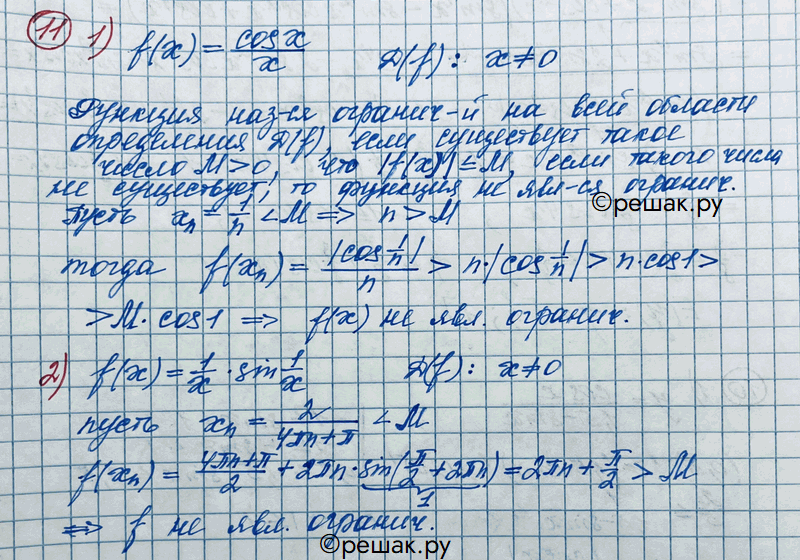 11 1) f(x) = cos x / x   D(f): x ≠ 0
Функция наз-ся огранич-й на всей области
определения D(f), если существует такое
число M > 0, что |f(x)| ≤ M, если такого числа
не существует, то функция не явл-ся огранич.
©решак.ру
Пусть xₙ = 1/n < M ⇒ n > M
тогда f(xₙ) = |cos 1/n| / n > n·|cos 1/n| > n·cos1 >
> M·cos1 ⇒ f(x) не явл. огранич.
2) f(x) = 1/x · sin 1/x   D(f): x ≠ 0
пусть xₙ = 2/(4πn+π) < M
f(xₙ) = (4πn+π)/2 + 2πn · sin(π/2 + 2πn) = 2πn + π/2 > M
1
⇒ f не явл. огранич.
©решак.ру